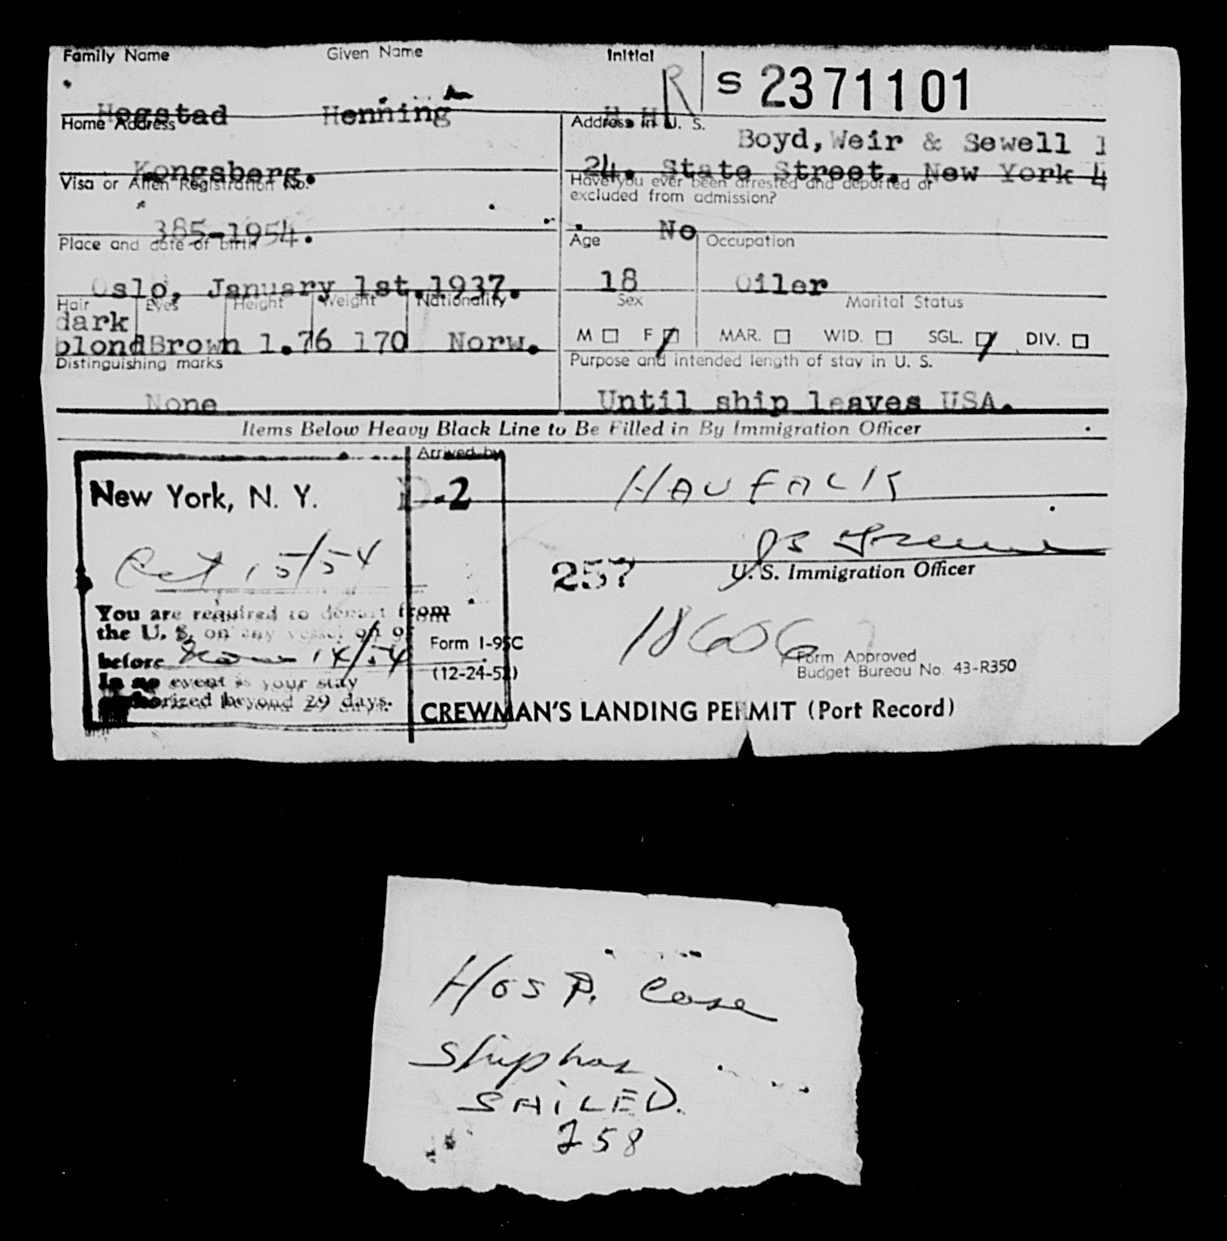 Family Name Given Name Initial
Hegstad Henning H.H. R S 2371101
Home Address Address in U. S.
Kongsberg. Boyd, Weir & Sewell
24. State Street. New York 4
Visa or Alien Registration No. Have you ever been arrested and deported or
excluded from admission?
385-1954. No
Place and date of birth Age Occupation
Oslo, January 1st. 1937. 18 Oiler
Hair Eyes Height Weight Nationality Sex Marital Status
dark
blond Brown 1.76 170 Norw. M □ F □ MAR. □ WID. □ SGL. □ DIV. □
Distinguishing marks Purpose and intended length of stay in U. S.
None Until ship leaves USA.
Items Below Heavy Black Line to Be Filled in By Immigration Officer
Arrived by
New York, N. Y. D-2 HAUFALK
Oct 15/54
257 U. S. Immigration Officer
You are required to depart from
the U. S. on any vessel on or
before Nov 14/54
In no event is your stay
authorized beyond 29 days.
Form I-95C
(12-24-52)
18606
Form Approved
Budget Bureau No. 43-R350
CREWMAN'S LANDING PERMIT (Port Record)
Hosp. Case
Ship has
SAILED.
258